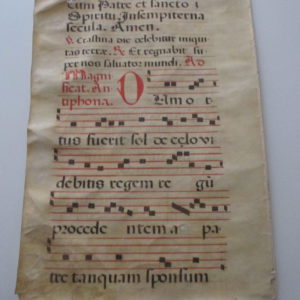 cum Patre et sancto
Spiritu, In sempiterna
secula. Amen.
V. Crastina die delebitur iniqui
tas terræ. R. Et regnabit su
per nos salvator mundi. Ad
Magni
ficat. An
tiphona. O
Um o r
tus fuerit sol de cęlo vi
debitis regem re gũ
procede ntem a pa
tre tanquam sponsum